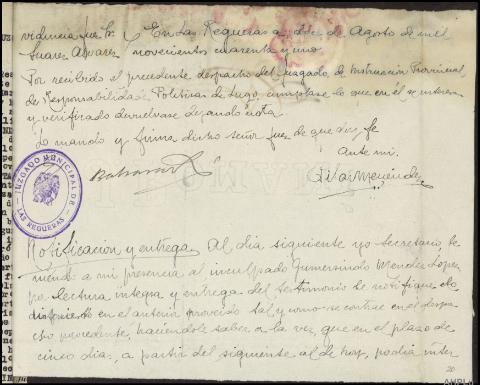 videncia Juez Sr. } En Las Regueras a doce de Agosto de mil
Suarez Alvarez } novecientos cuarenta y uno.
Por recibido el precedente despacho del Juzgado de Instrucción Provincial
de Responsabilidades Politicas de Lugo, cumplase lo que en él se interesa
y verificado devuelvase dejando nota.
Lo mandó y firma dicho señor Juez de que doy fe
Ante mi.
Menendez
JUZGADO MUNICIPAL DE
LAS REGUERAS
Notificacion y entrega. Al dia siguiente yo Secretario, te
niendo a mi presencia al inculpado Gumersindo Mendez Lopez
por lectura integra y entrega del testimonio le notifique lo
dispuesto en el anterior proveido tal y como se contrae en el despa-
cho precedente, haciendole saber a la vez, que en el plazo de
cinco dias, a partir del siguiente al de hoy, podia inter
20